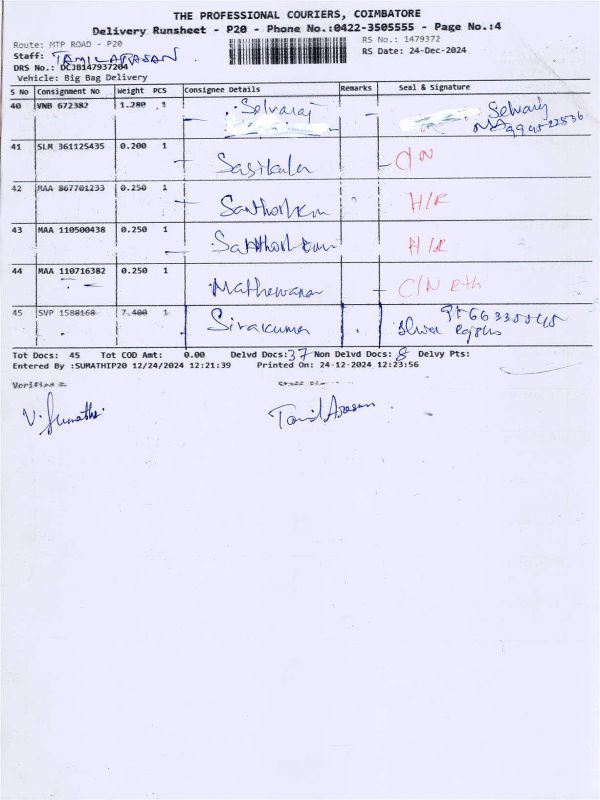 THE PROFESSIONAL COURIERS, COIMBATORE
Delivery Runsheet - P20 - Phone No.:0422-3505555 - Page No.:4
Route: MTP ROAD - P20
RS No.: 1479372
Staff: TAMILARASAN
RS Date: 24-Dec-2024
DRS No.: DCJB147937204
Vehicle: Big Bag Delivery
S No Consignment No Weight PCS Consignee Details Remarks Seal & Signature
40 VNB 672382 1.280 1 Selvaraj Selvaraj
41 SLM 361125435 0.200 1 Sasikala C/N
42 MAA 867701233 0.250 1 H/R
43 MAA 110500438 0.250 1 H/R
44 MAA 110716382 0.250 1 C/N Rth
45 SVP 1588168 7.400 1 Sivakumar
Tot Docs: 45 Tot COD Amt: 0.00 Delvd Docs: 37 Non Delvd Docs: 8 Delvy Pts:
Entered By :SUMATHIP20 12/24/2024 12:21:39 Printed On: 24-12-2024 12:23:56
V. Sumathi TamilArasan